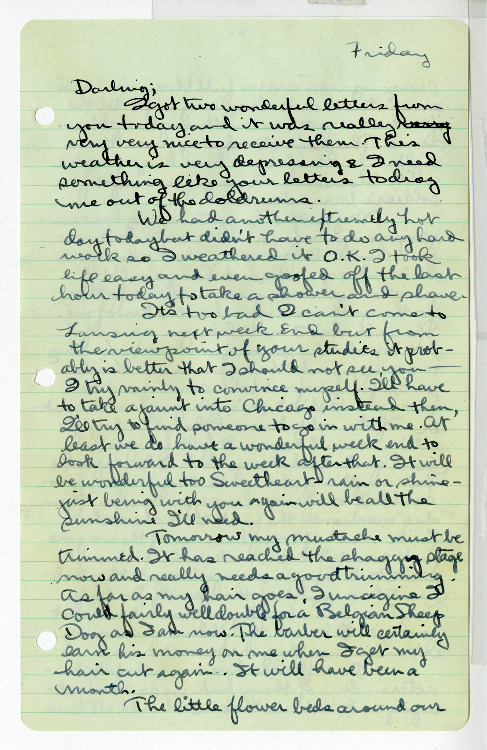 Friday
Darling;
I got two wonderful letters from
you today and it was really very
very very nice to receive them. This
weather is very depressing & I need
something like your letters to drag
me out of the doldrums.
We had another extremely hot
day today but didn't have to do any hard
work so I weathered it O.K. I took
life easy and even goofed off the last
hour today to take a shower and shave.
It's too bad I can't come to
Lansing next week end but from
the viewpoint of your studies it prob-
ably is better that I should not see you—
I try vainly to convince myself. I'll have
to take a jaunt into Chicago instead then,
I'll try to find someone to go in with me. At
least we do have a wonderful week end to
look forward to the week after that. It will
be wonderful too Sweetheart - rain or shine -
just being with you again will be all the
sunshine I'll need.
Tomorrow my mustache must be
trimmed. It has reached the shaggy stage
now and really needs a good trimming.
As far as my hair goes, I imagine I
could fairly well double for a Belgian Sheep
Dog as I am now. The barber will certainly
earn his money on me when I get my
hair cut again. It will have been a
month.
The little flower beds around our